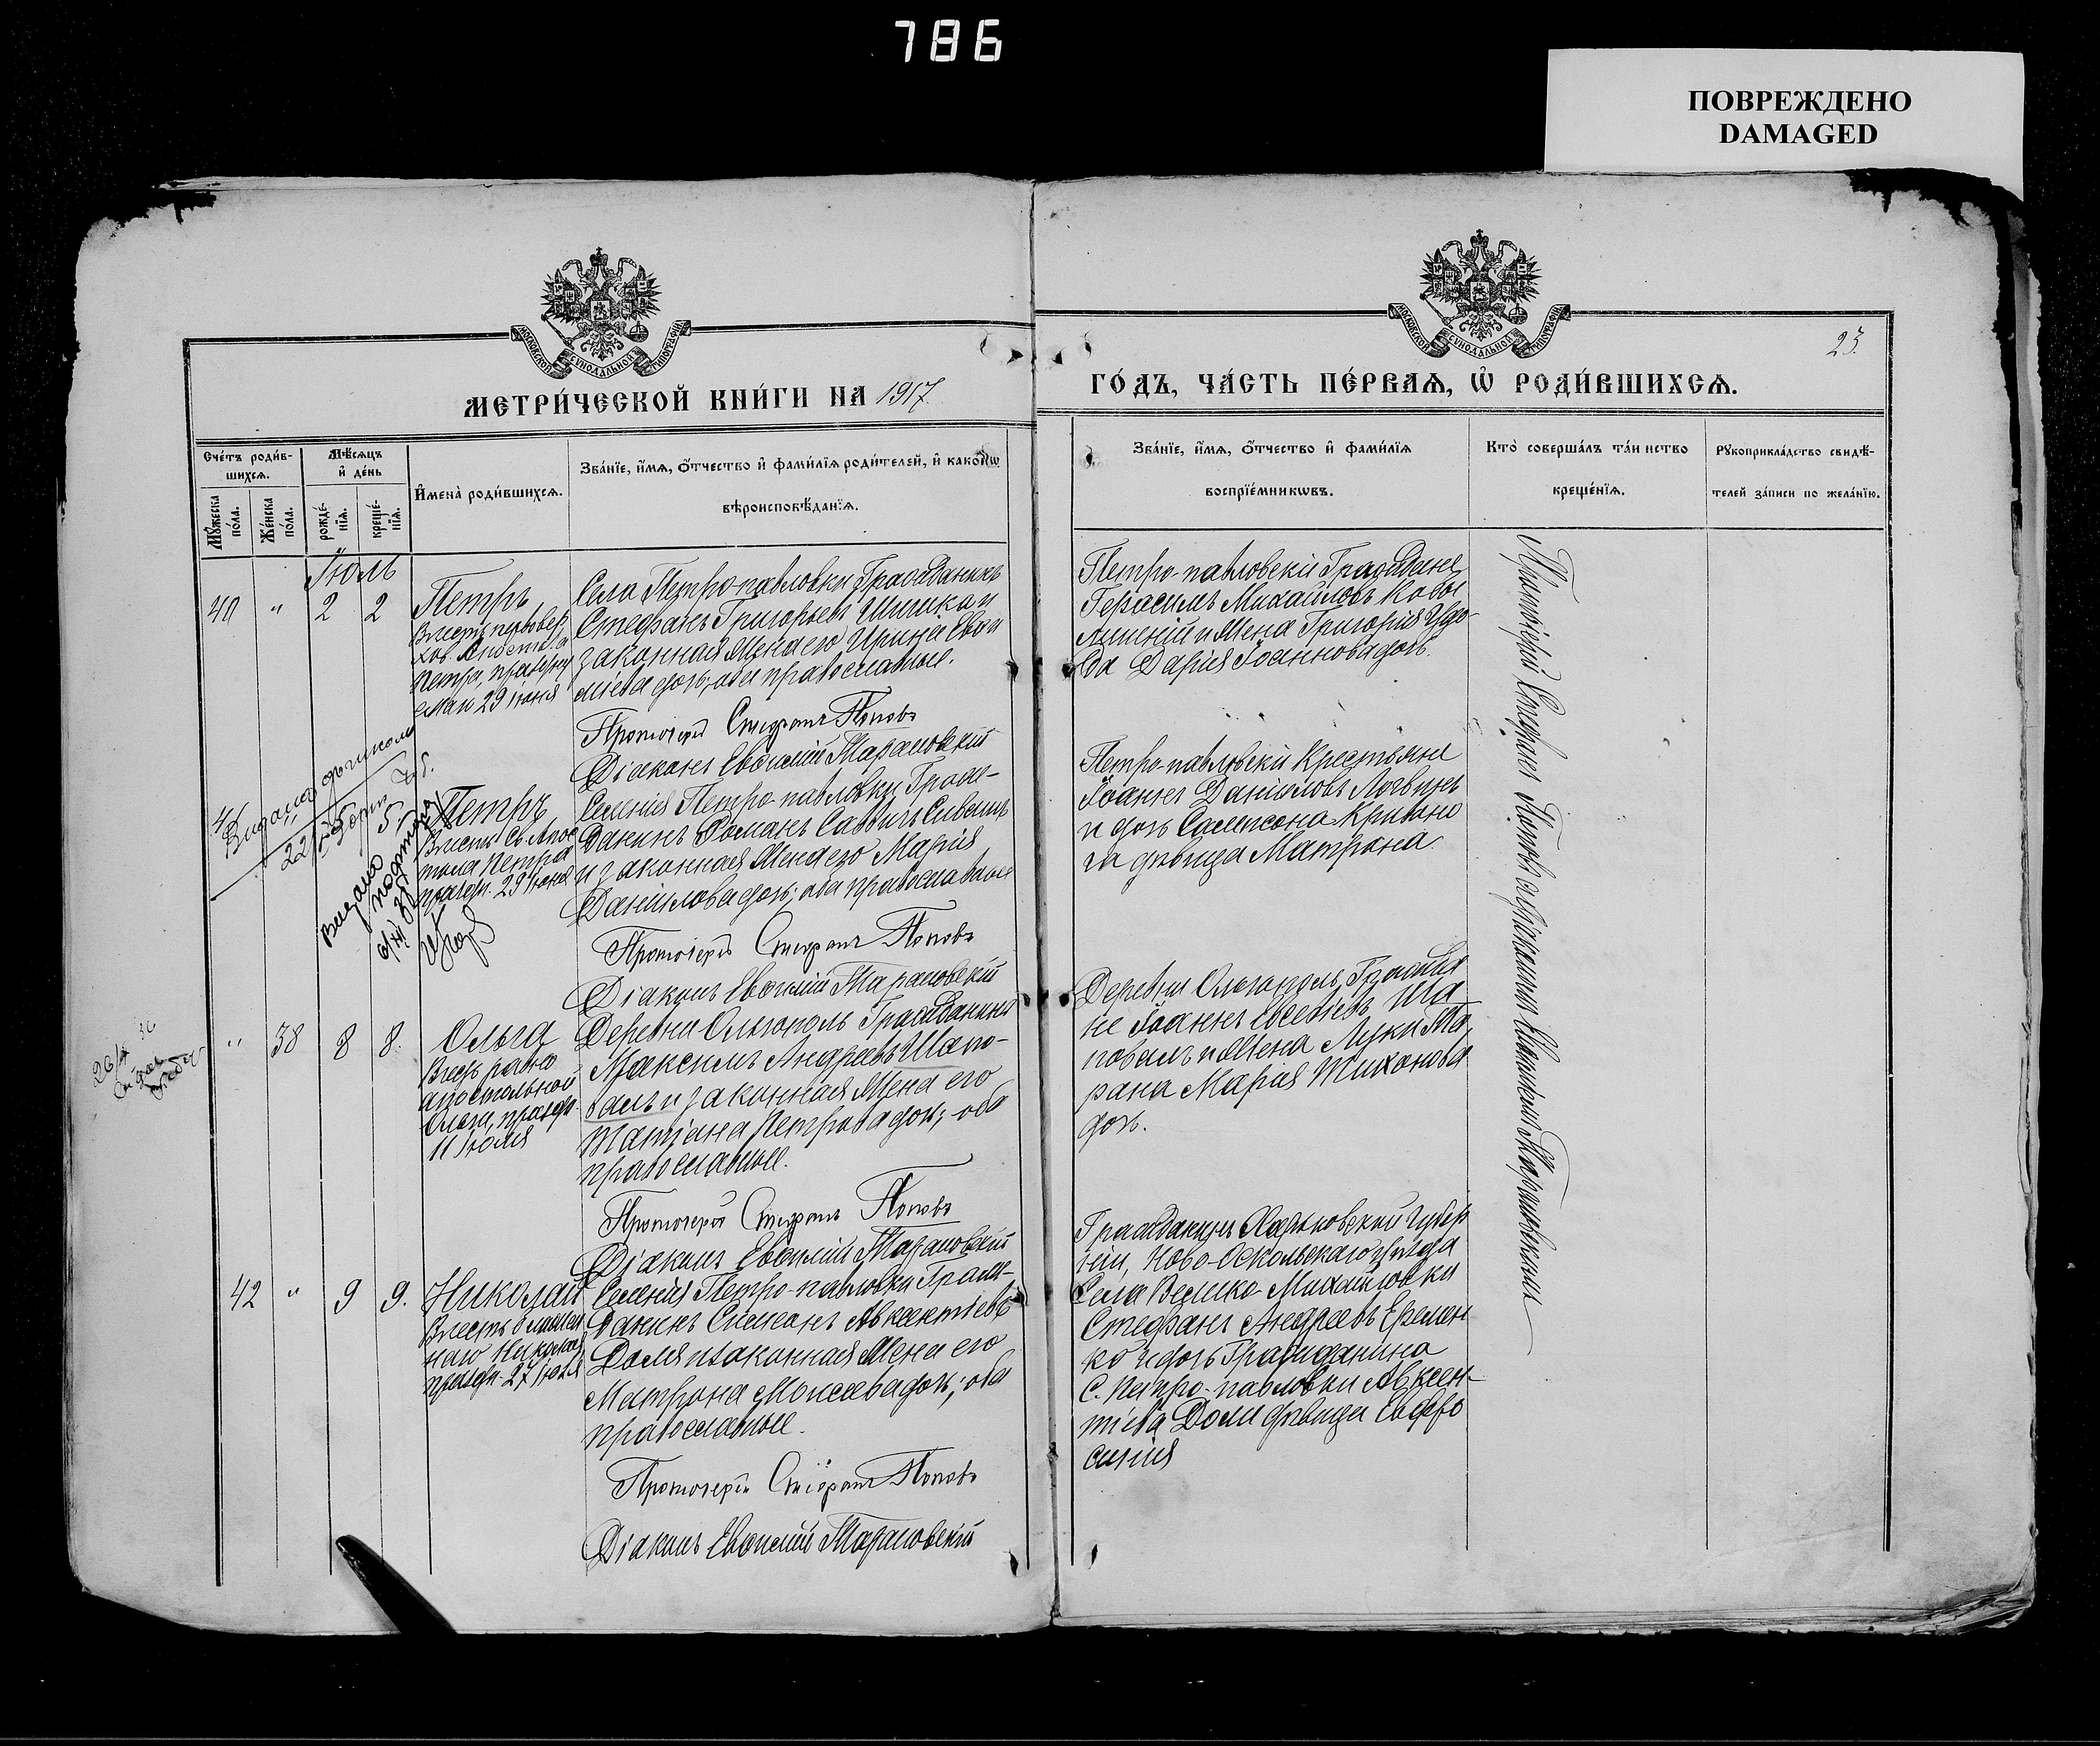 786
ПОВРЕЖДЕНО
DAMAGED
МОСКОВСКОЙ СѴНОДАЛЬНОЙ ТИПОГРАФІИ
МОСКОВСКОЙ СѴНОДАЛЬНОЙ ТИПОГРАФІИ
23.
МЕТРИ́ЧЕСКОЙ КНИ́ГИ НА 1917
ГО́ДЪ, ЧА́СТЬ ПЕ́РВАѦ, Ѡ҆ РОДИ́ВШИХСѦ.
Сче́тъ роди́в-
шихсѧ.
Мꙋ́жеска по́ла.
Же́нска по́ла.
Мѣ́сѧцъ
и҆ де́нь
рожде́-
нїѧ.
креще́-
нїѧ.
И҆мена̀ роди́вшихсѧ.
Зва́нїе, и҆́мѧ, ѻ҆́тчество и҆ фами́лїѧ роди́телей, и҆ како́гѡ
вѣроисповѣ́данїѧ.
Зва́нїе, и҆́мѧ, ѻ҆́тчество и҆ фами́лїѧ
воспрїе́мникѡвъ.
Кто̀ соверша́лъ та́инство
креще́нїѧ.
Рꙋкоприкла́дство свидѣ́-
телей за́писи по жела́нїю.
Іюль
40 " 2 2
Петръ
Въ честь первовер
хов. Апостола
Петра, празднуе
маго 29 іюня
Села Петро-павловки Гражданинъ
Стефанъ Григорьевъ Шишкан
законная жена его Ирина
дочь; оба православные.
Протоіерей Стефанъ Поповъ
Діаконъ Евѳимій Тарановскій
Петро-павловскіи Граждане
Герасимъ Михайловъ Ковы
и жена Григорія Удо-
да Дарія Іоаннова дочь.
41 " 5 5
Петръ
Въ честь Св. Апос
тола Петра
праздн. 29 іюня
Селенія Петро-павловки Граж-
данинъ Романъ Саввинъ
и законная жена его Марія
Даніилова дочь; оба православные
Протоіерей Стефанъ Поповъ
Діаконъ Евѳимій Тарановскій
Петро-павловскіи Крестьяне
Іоаннъ Даніиловъ Логвинъ
и дочь Сампсона Кривоно
га дѣвица Матрона.
" 38 8 8.
Ольга
Въ честь равно
апостольной
Ольги, праздн.
11 іюля
Деревни Ольгополь Гражданинъ
Максимъ Андреевъ Шапо-
валъ и законная жена его
Татіана Петрова дочь; оба
православные.
Протоіерей Стефанъ Поповъ
Діаконъ Евѳимій Тарановскій
Деревни Ольгополь Гражда
не Іоаннъ Евсевіевъ Ша
повалъ и жена Луки Та
рана Марія Тихонова
дочь.
42 " 9 9.
Николай
Въ честь блажен
наго Николая
праздн. 27 іюля
Селенія Петро-павловки Граж-
данинъ Симеонъ Авксентіевъ
Доля и законная жена его
Матрона Моисеева дочь; оба
православные.
Протоіерей Стефанъ Поповъ
Діаконъ Евѳимій Тарановскій
Гражданинъ Харьковской губер
ніи, Ново-Оскольскаго уѣзда
Села Велико-Михайловки
Стефанъ Андреевъ Еремен
ко и дочь Гражданина
С. Петро-павловки Авксен-
тіева Доли дѣвица Евфро
синія
Протоіерей Стефанъ Поповъ съ діакономъ Евѳиміемъ Тарановскимъ